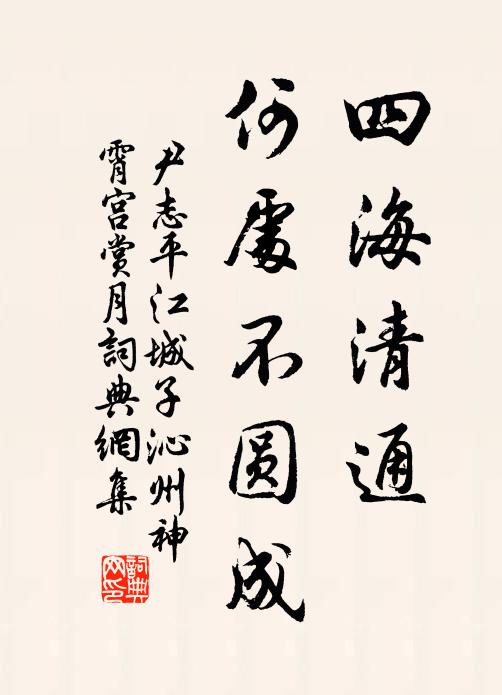 四海清通
何處不圓成
尹志平江城子沁州神
霄宫賞月詞典網集
詞典
网印